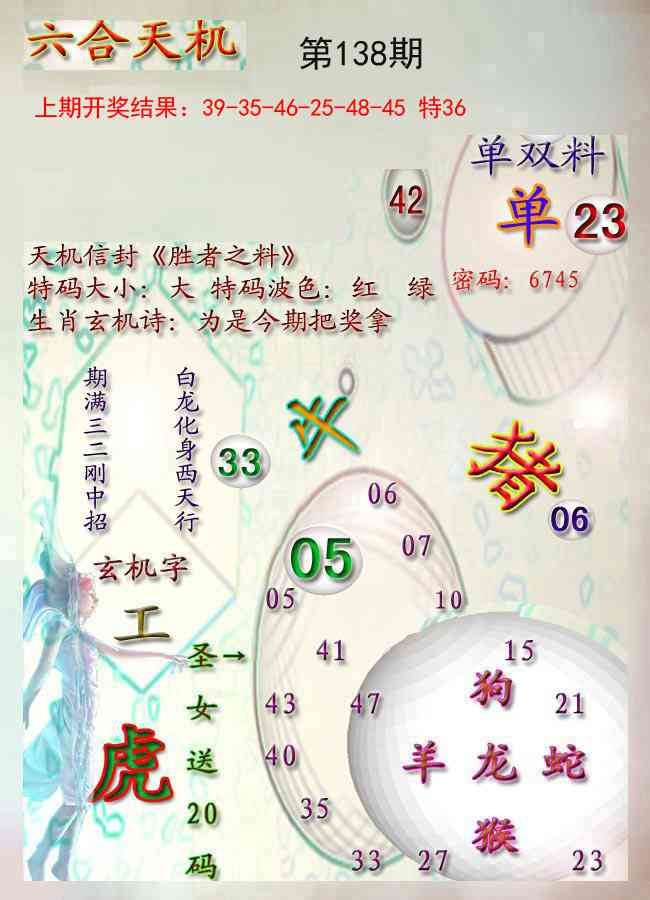 六合天机
第138期
上期开奖结果：39-35-46-25-48-45 特36
单双料
42
单 23
天机信封《胜者之料》
特码大小：大 特码波色：红 绿
密码：6745
生肖玄机诗：为是今期把奖拿
期满三二刚中招
白龙化身西天行
33
06
06
05
07
05
10
玄机字
工
虎
圣→
女
送
20
码
41
15
狗
43
47
21
40
羊 龙 蛇
35
猴
33
27
23